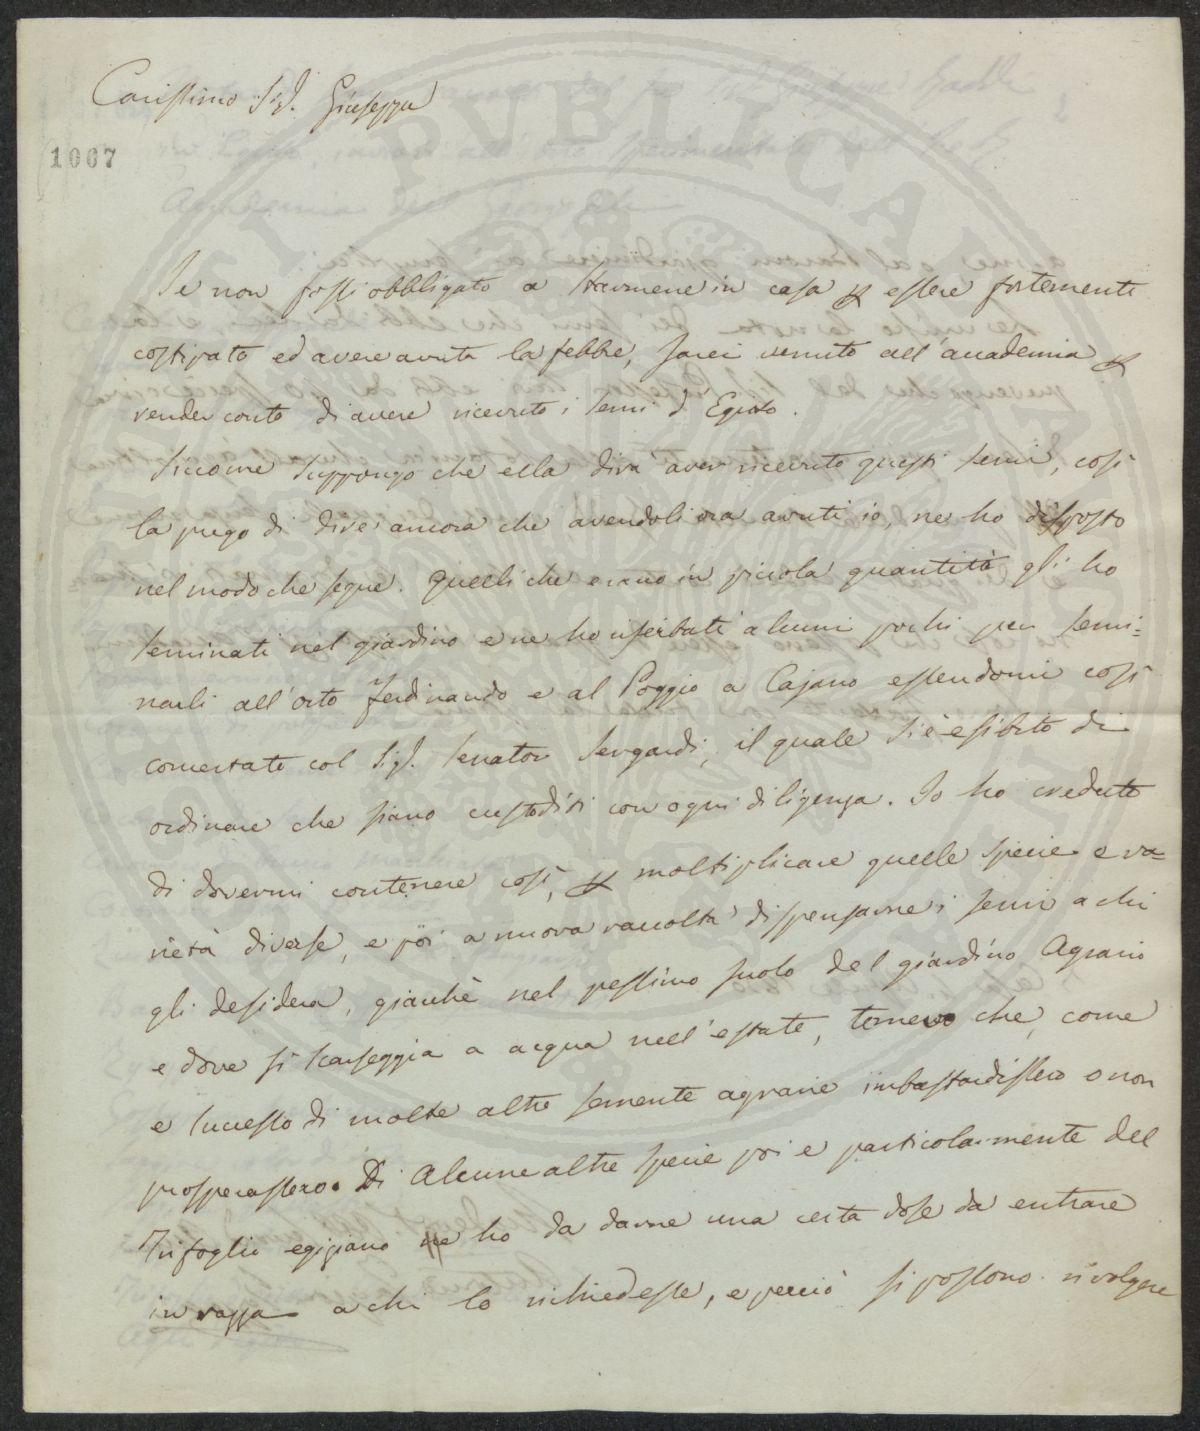 Carissimo Sig. Giuseppe
1067
Se non fossi obbligato a starmene in casa per essere fortemente
costipato ed avere avuta la febbre, sarei venuto all'accademia per
render conto di avere ricevuto i semi d'Egitto.
Siccome suppongo che ella dirà aver ricevuto questi semi, così
la prego di dire ancora che, avendoli ora avuti io, ne ho disposto
nel modo che segue. Quelli che erano in piccola quantità gli ho
seminati nel giardino e ne ho riserbati alcuni pochi per semi=
narli all'orto Ferdinando e al Poggio a Cajano essendomi così
concertato col Sig. Senator Sergardi, il quale si è esibito di
ordinare che siano custoditi con ogni diligenza. Io ho creduto
di dovermi contenere così, per moltiplicare quelle specie e va=
rietà diverse, e poi a nuova raccolta dispensarne i semi a chi
gli desidera, giacchè nel pessimo suolo del giardino Agrario
e dove si scarseggia a acqua nell'estate, temevo che, come
e successo di molte altre semente agrarie imbastardissero o non
prosperassero. Di Alcune altre specie poi e particolarmente del
Trifoglio egiziano ne ho da darne una certa dose da entrare
in a chi lo richiedesse, e perciò si possono rivolgere